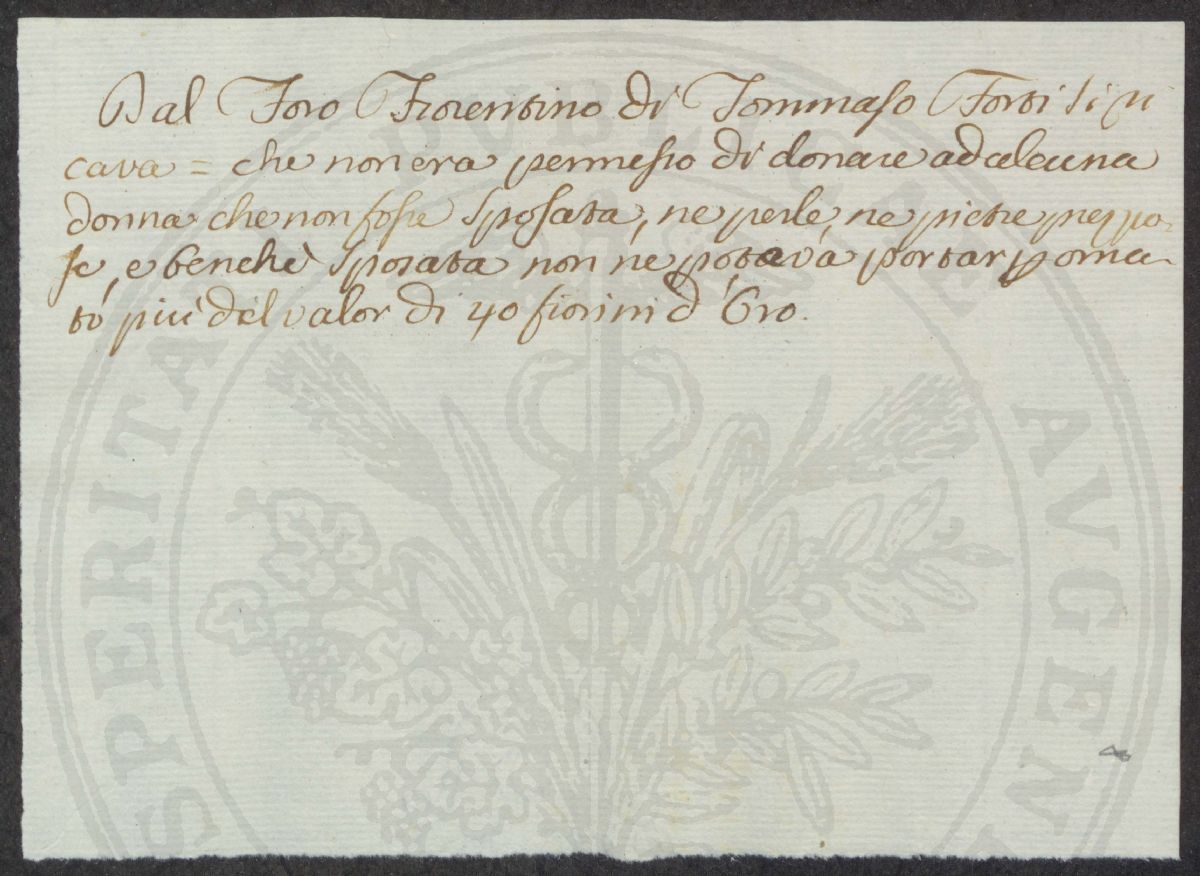 Dal Foro Fiorentino di Tommaso Forti si ri
cava = che non era permesso di donare ad alcuna
donna che non fosse sposata, ne perle, ne pietre prezzo=
se, e benchè sposata non ne poteva portar p orna
to più del valor di 40 fiorini d'Oro.